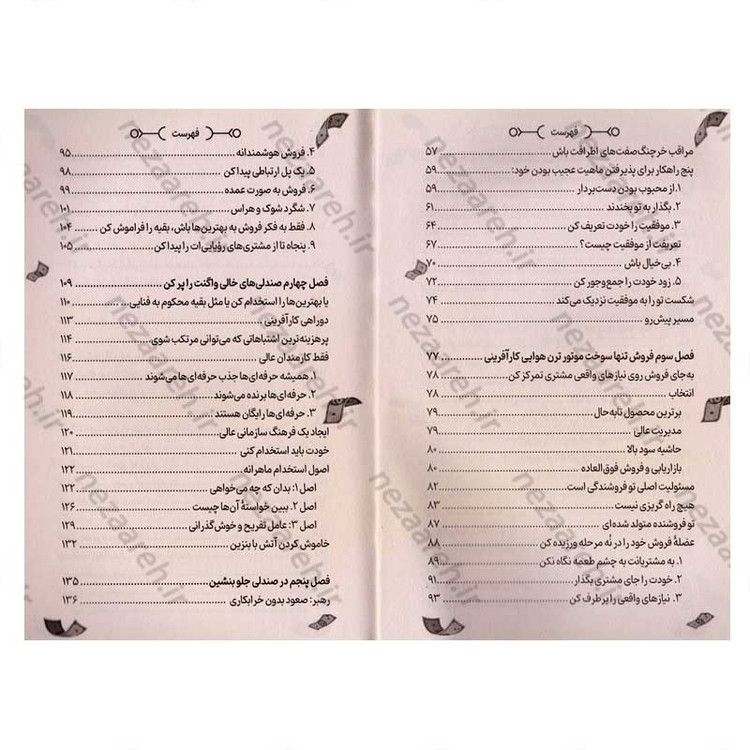 فهرست
مراقب خرچنگ‌صفت‌های اطرافت باش ۵۷
پنج راهکار برای پذیرفتن ماهیت عجیب بودن خود: ۵۹
۱. از محبوب بودن دست بردار ۵۹
۲. بگذار به تو بخندند ۶۱
۳. موفقیت را خودت تعریف کن ۶۴
تعریفت از موفقیت چیست؟ ۶۷
۴. بی‌خیال باش ۷۰
۵. زود خودت را جمع‌وجور کن ۷۲
شکست تو را به موفقیت نزدیک می‌کند ۷۴
مسیر پیش‌رو ۷۵
فصل سوم فروش تنها سوخت موتور ترن هوایی کارآفرینی ۷۷
به‌جای فروش روی نیازهای واقعی مشتری تمرکز کن ۷۸
انتخاب ۷۸
برترین محصول تابه‌حال ۷۹
مدیریت عالی ۷۹
حاشیه سود بالا ۸۰
بازاریابی و فروش فوق‌العاده ۸۰
مسئولیت اصلی تو فروشندگی است ۸۲
هیچ راه گریزی نیست ۸۳
تو فروشنده متولد شده‌ای ۸۷
عضلهٔ فروش خود را در نُه مرحله ورزیده کن ۸۸
۱. به مشتریانت به چشم طعمه نگاه نکن ۸۹
۲. خودت را جای مشتری بگذار ۹۱
۳. نیازهای واقعی را برطرف کن ۹۳
فهرست
۴. فروش هوشمندانه ۹۵
۵. یک پل ارتباطی پیدا کن ۹۸
۶. فروش به صورت عمده ۹۹
۷. شگرد شوک و هراس ۱۰۱
۸. فقط به فکر فروش به بهترین‌ها باش، بقیه را فراموش کن ۱۰۴
۹. پنجاه تا از مشتری‌های رؤیایی‌ات را پیدا کن ۱۰۵
فصل چهارم صندلی‌های خالی واگنت را پر کن ۱۰۹
یا بهترین‌ها را استخدام کن یا مثل بقیه محکوم به فنایی ۱۱۰
دوراهی کارآفرینی ۱۱۳
پرهزینه‌ترین اشتباهاتی که می‌توانی مرتکب شوی ۱۱۴
فقط کارمندان عالی ۱۱۶
۱. همیشه حرفه‌ای‌ها جذب حرفه‌ای‌ها می‌شوند ۱۱۷
۲. حرفه‌ای‌ها برنده می‌شوند ۱۱۸
۳. حرفه‌ای‌ها رایگان هستند ۱۱۹
ایجاد یک فرهنگ سازمانی عالی ۱۲۰
خودت باید استخدام کنی ۱۲۱
اصول استخدام ماهرانه ۱۲۲
اصل ۱: بدان که چه می‌خواهی ۱۲۲
اصل ۲. ببین خواستهٔ آن‌ها چیست ۱۲۶
اصل ۳: عامل تفریح و خوش‌گذرانی ۱۲۹
خاموش کردن آتش با بنزین ۱۳۲
فصل پنجم در صندلی جلو بنشین ۱۳۵
رهبر: صعود بدون خرابکاری ۱۳۶
nezaareh.ir